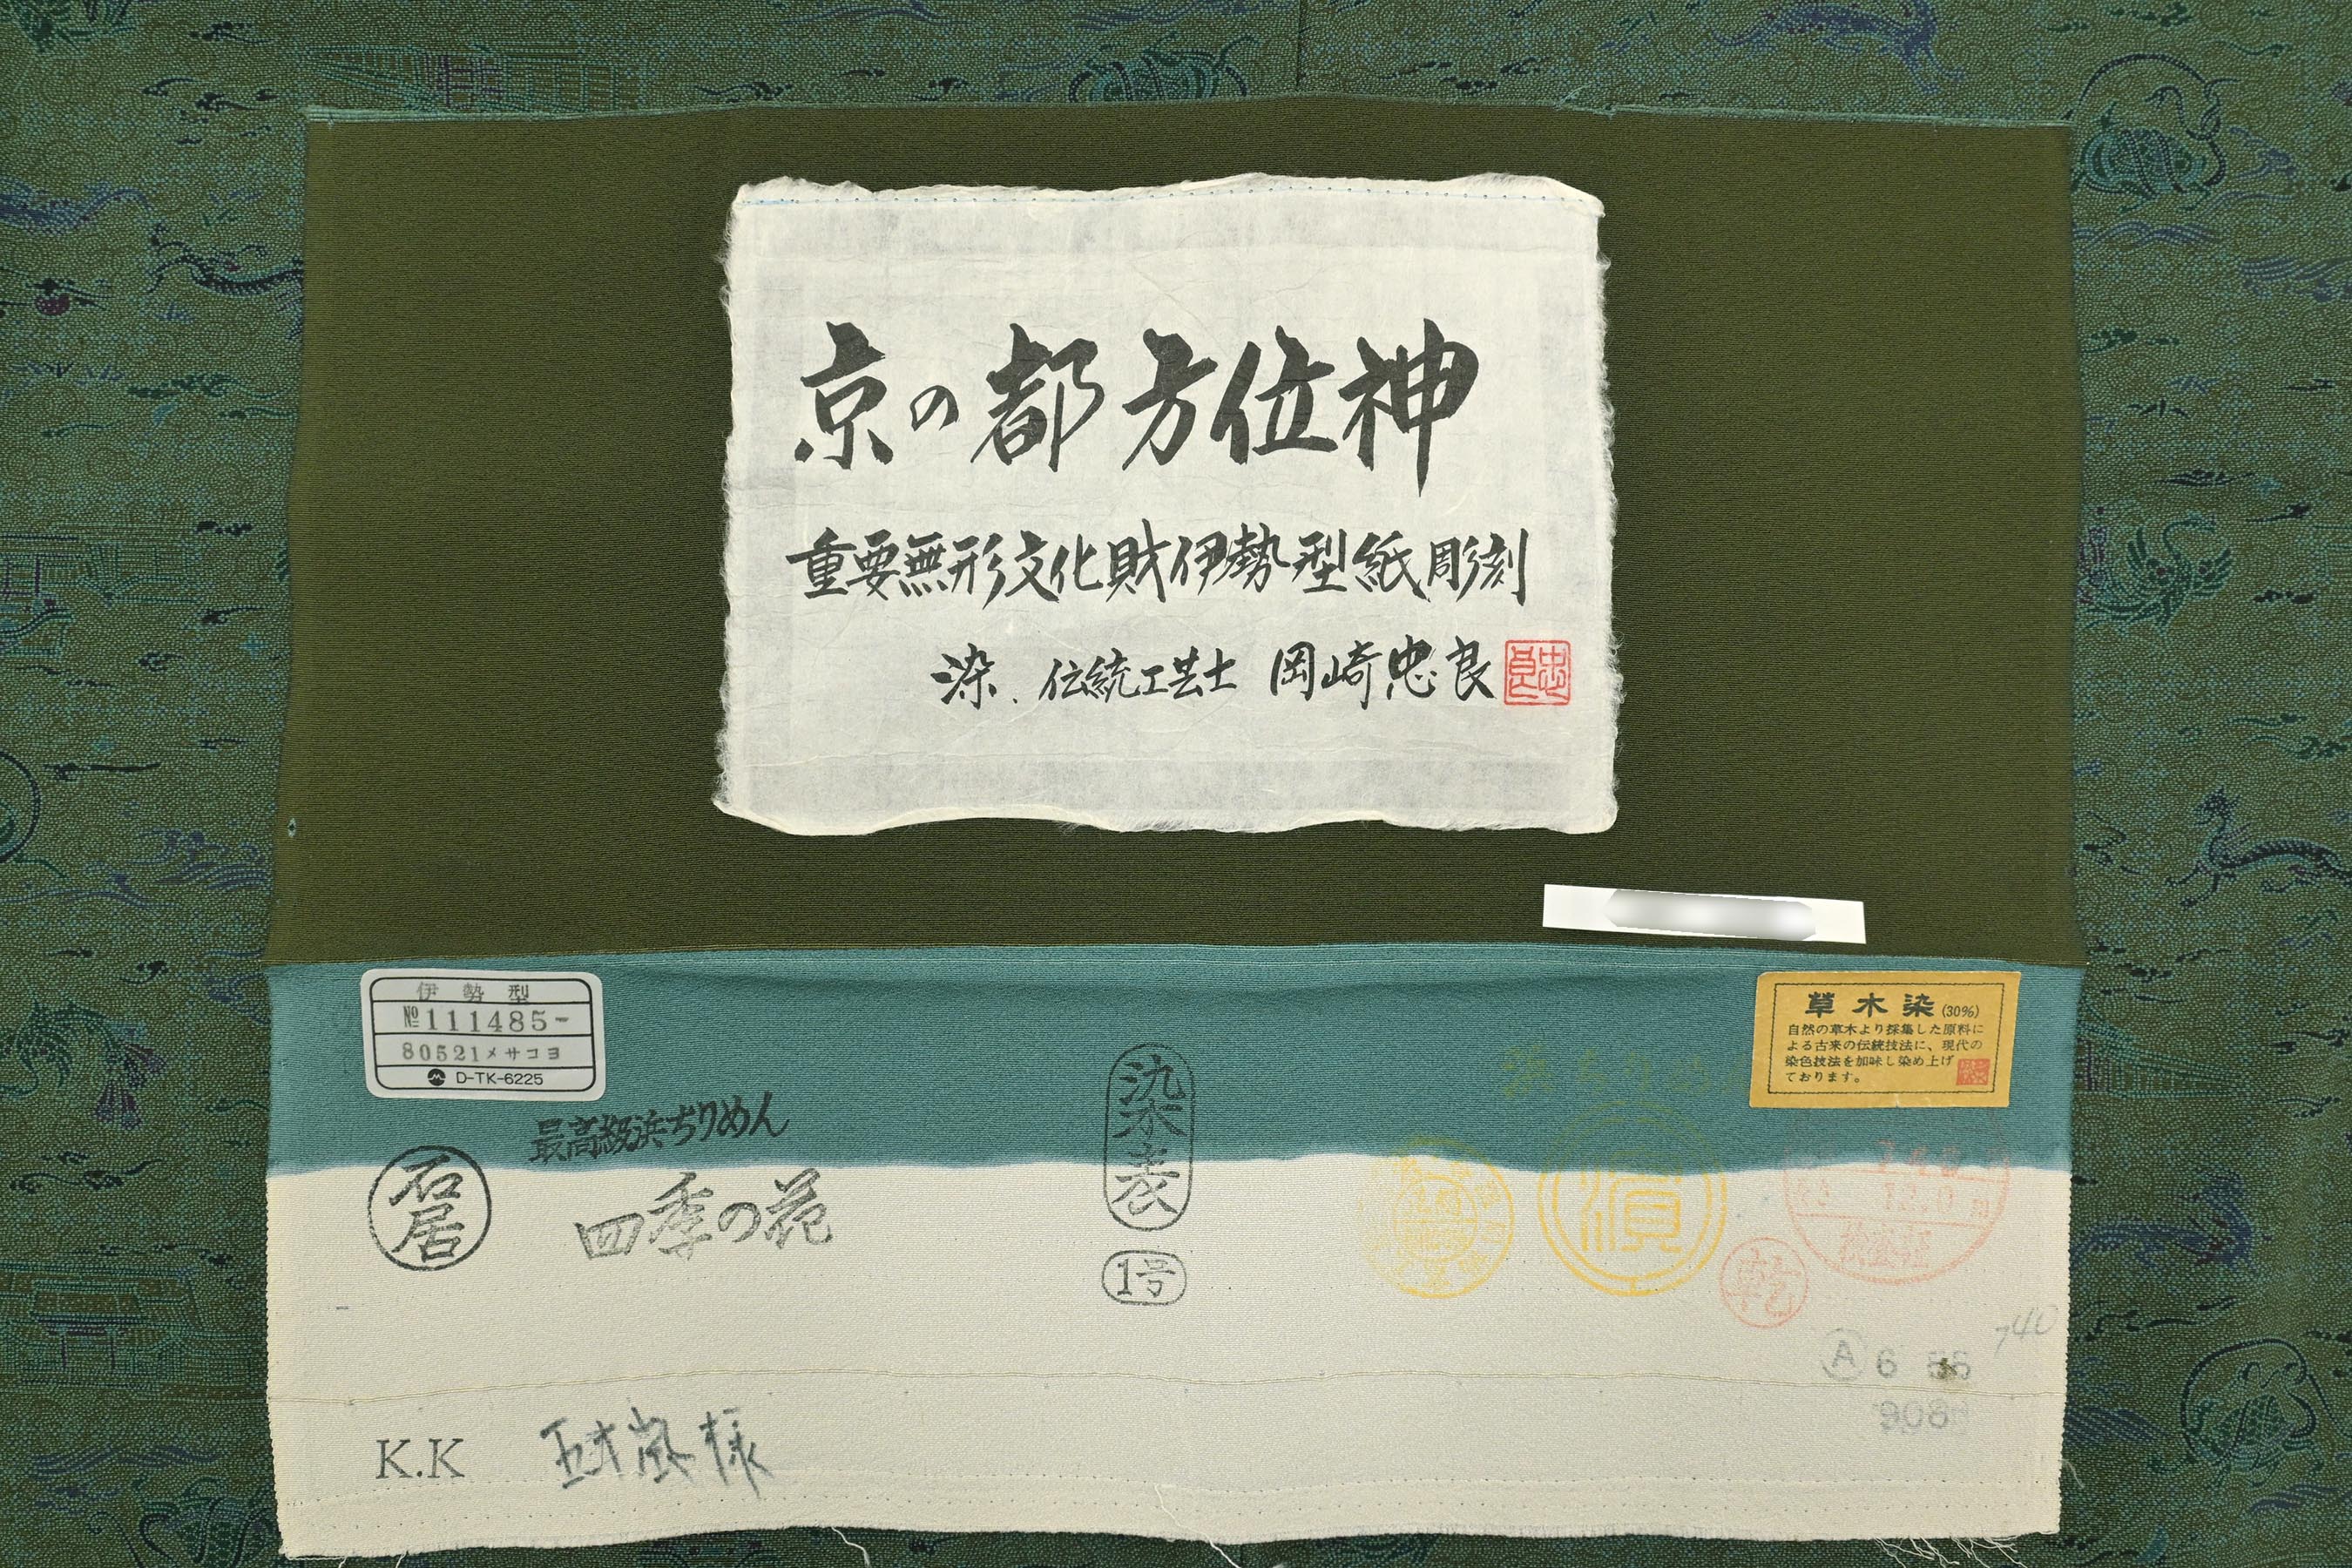 京の都方位神
重要無形文化財伊勢型紙彫刻
染.伝統工芸士 岡崎忠良
忠良
伊勢型
№111485-
80521メサコヨ
D-TK-6225
草木染(30%)
自然の草木より採集した原料に
よる古来の伝統技法に、現代の
染色技法を加味し染め上げ
ております。
最高級浜ちりめん
石居
四季の花
染表
1号
濱
検査証
乾
740
A 6
908
K.K